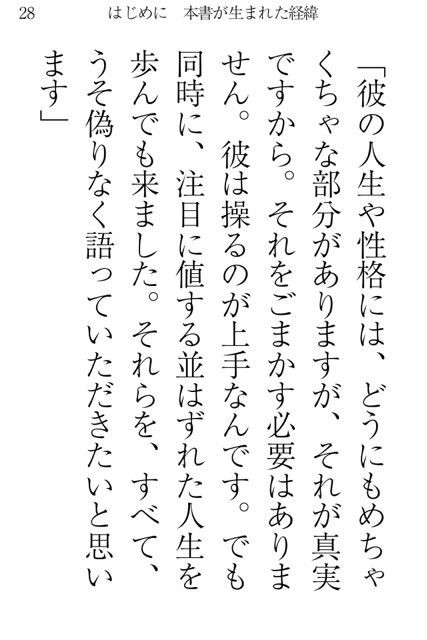 28
はじめに　本書が生まれた経緯
「彼の人生や性格には、どうにもめちゃ
くちゃな部分がありますが、それが真実
ですから。それをごまかす必要はありま
せん。彼は操るのが上手なんです。でも
同時に、注目に値する並はずれた人生を
歩んでも来ました。それらを、すべて、
うそ偽りなく語っていただきたいと思い
ます」